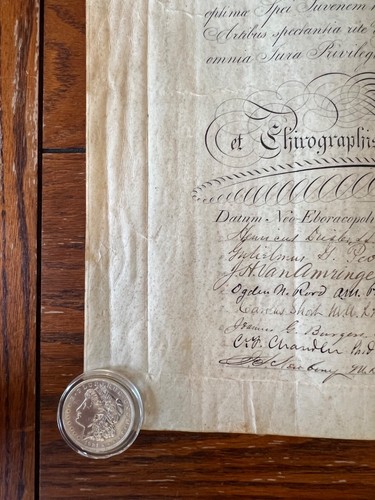 optimæ Spei Juvenem
Artibus spectantia rite
omnia Jura Privileg
et Chirographis
Datum Neo-Eboracopoli
Henricus Drisler
Gulielmus G. Pec
J. H. Van Amringe
Ogden N. Rood A.M. P
Carolus Short
Joannes C. Burgess
C. F. Chandler
J. S. Newberry